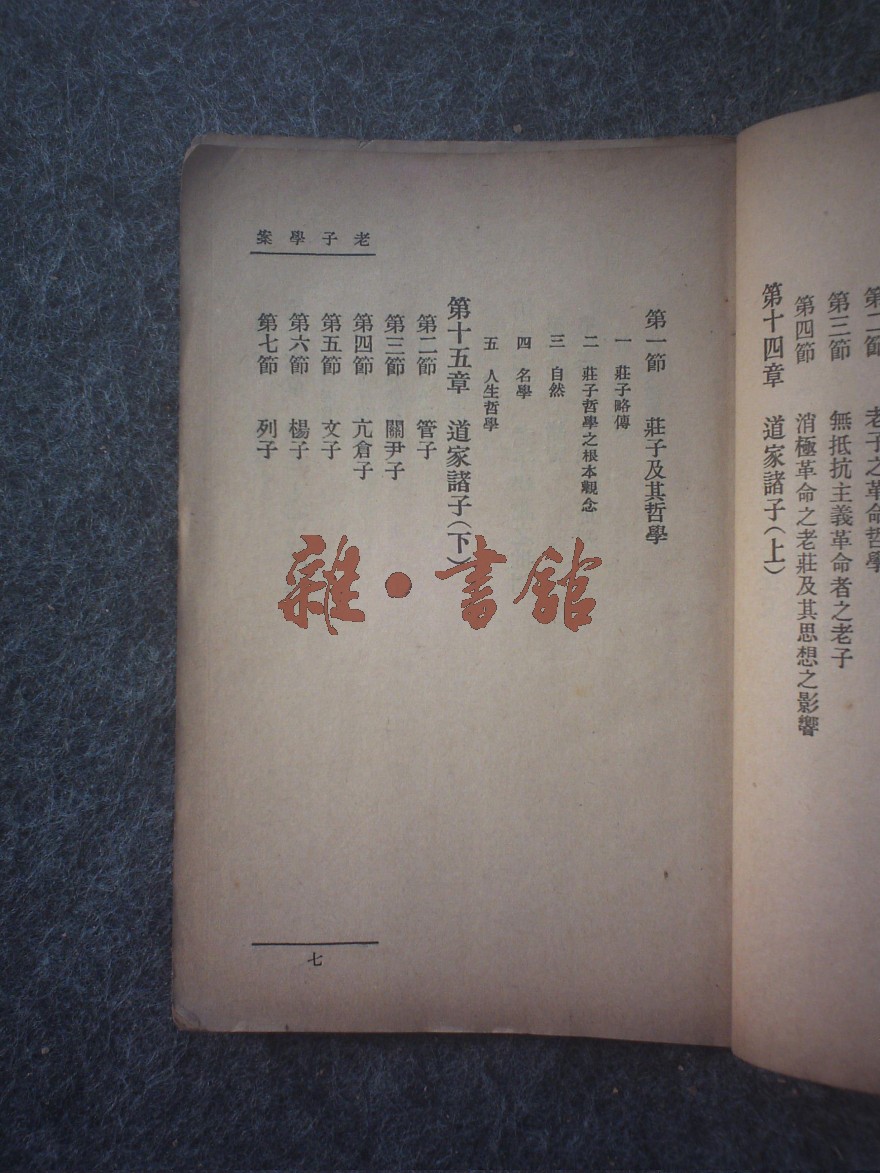 第二節　老子之革命哲學
第三節　無抵抗主義革命者之老子
第四節　消極革命之老莊及其思想之影響
第十四章　道家諸子（上）
第一節　莊子及其哲學
一　莊子略傳
二　莊子哲學之根本觀念
三　自然
四　名學
五　人生哲學
第十五章　道家諸子（下）
第二節　管子
第三節　關尹子
第四節　亢倉子
第五節　文子
第六節　楊子
第七節　列子
老子學案
七
雜·書館